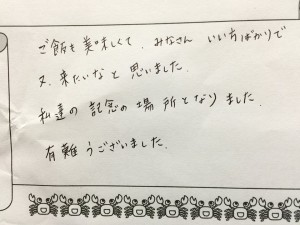 ご飯も美味しくて、みなさん いい方ばかりで
又、来たいなと思いました。
私達の記念の場所となりました。
有難うございました。